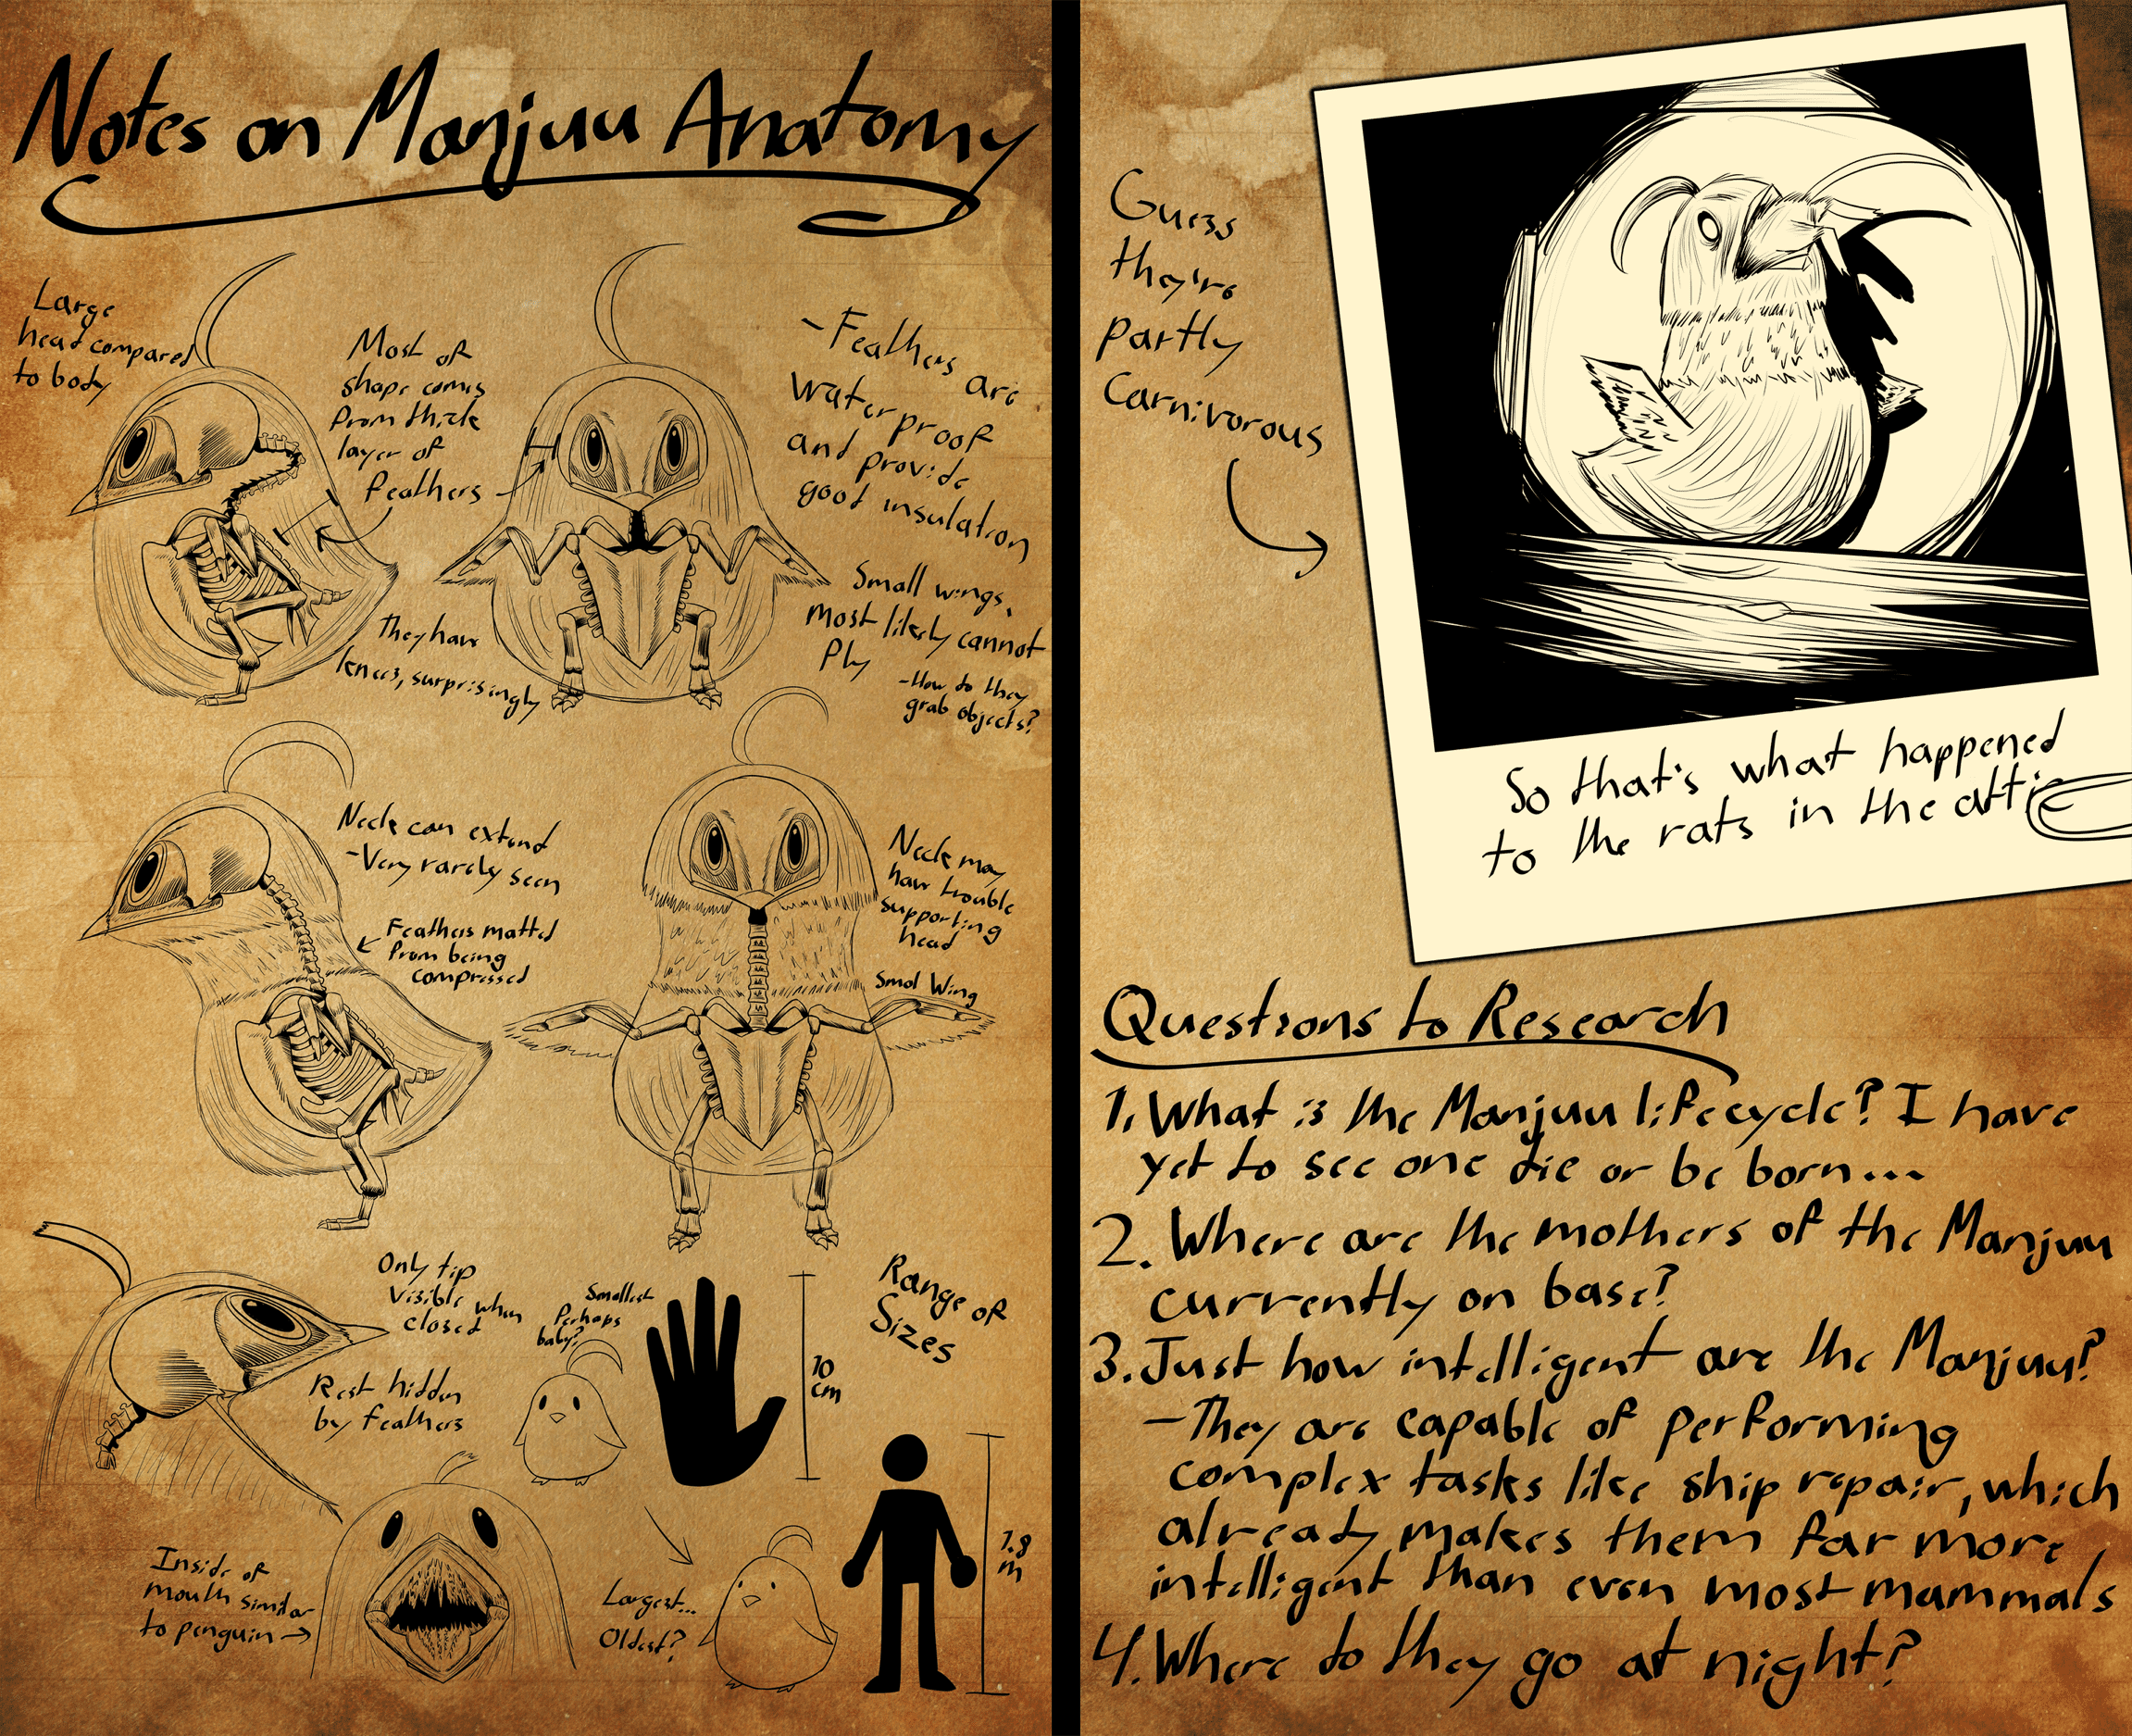 Notes on Manjuu Anatomy
Large
head compared
to body
Most of
shape comes
from thick
layer of
feathers
-Feathers are
waterproof
and provide
good insulation
They have
knees, surprisingly
Small wings,
most likely cannot
fly
-How do they
grab objects?
Neck can extend
-Very rarely seen
Feathers matted
from being
compressed
Neck may
have trouble
supporting
head
Smol Wing
Only tip
visible when
closed
Rest hidden
by feathers
Inside of
mouth similar
to penguin
Smallest
Perhaps
baby?
10
cm
Range of
Sizes
Largest...
Oldest?
1.8
m
Guess
they're
partly
Carnivorous
So that's what happened
to the rats in the attic
Questions to Research
1. What is the Manjuu lifecycle? I have
yet to see one die or be born...
2. Where are the mothers of the Manjuu
currently on base?
3. Just how intelligent are the Manjuu?
-They are capable of performing
complex tasks like ship repair, which
already makes them far more
intelligent than even most mammals
4. Where do they go at night?